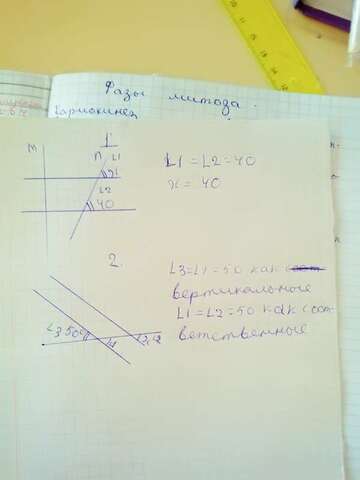 Фазы митоза.
1
m
n
∠1
x
∠2
40
∠1 = ∠2 = 40
x = 40
2.
∠3 = ∠1 = 50 как
вертикальные
∠1 = ∠2 = 50 как соот
ветственные
∠3 50
∠1